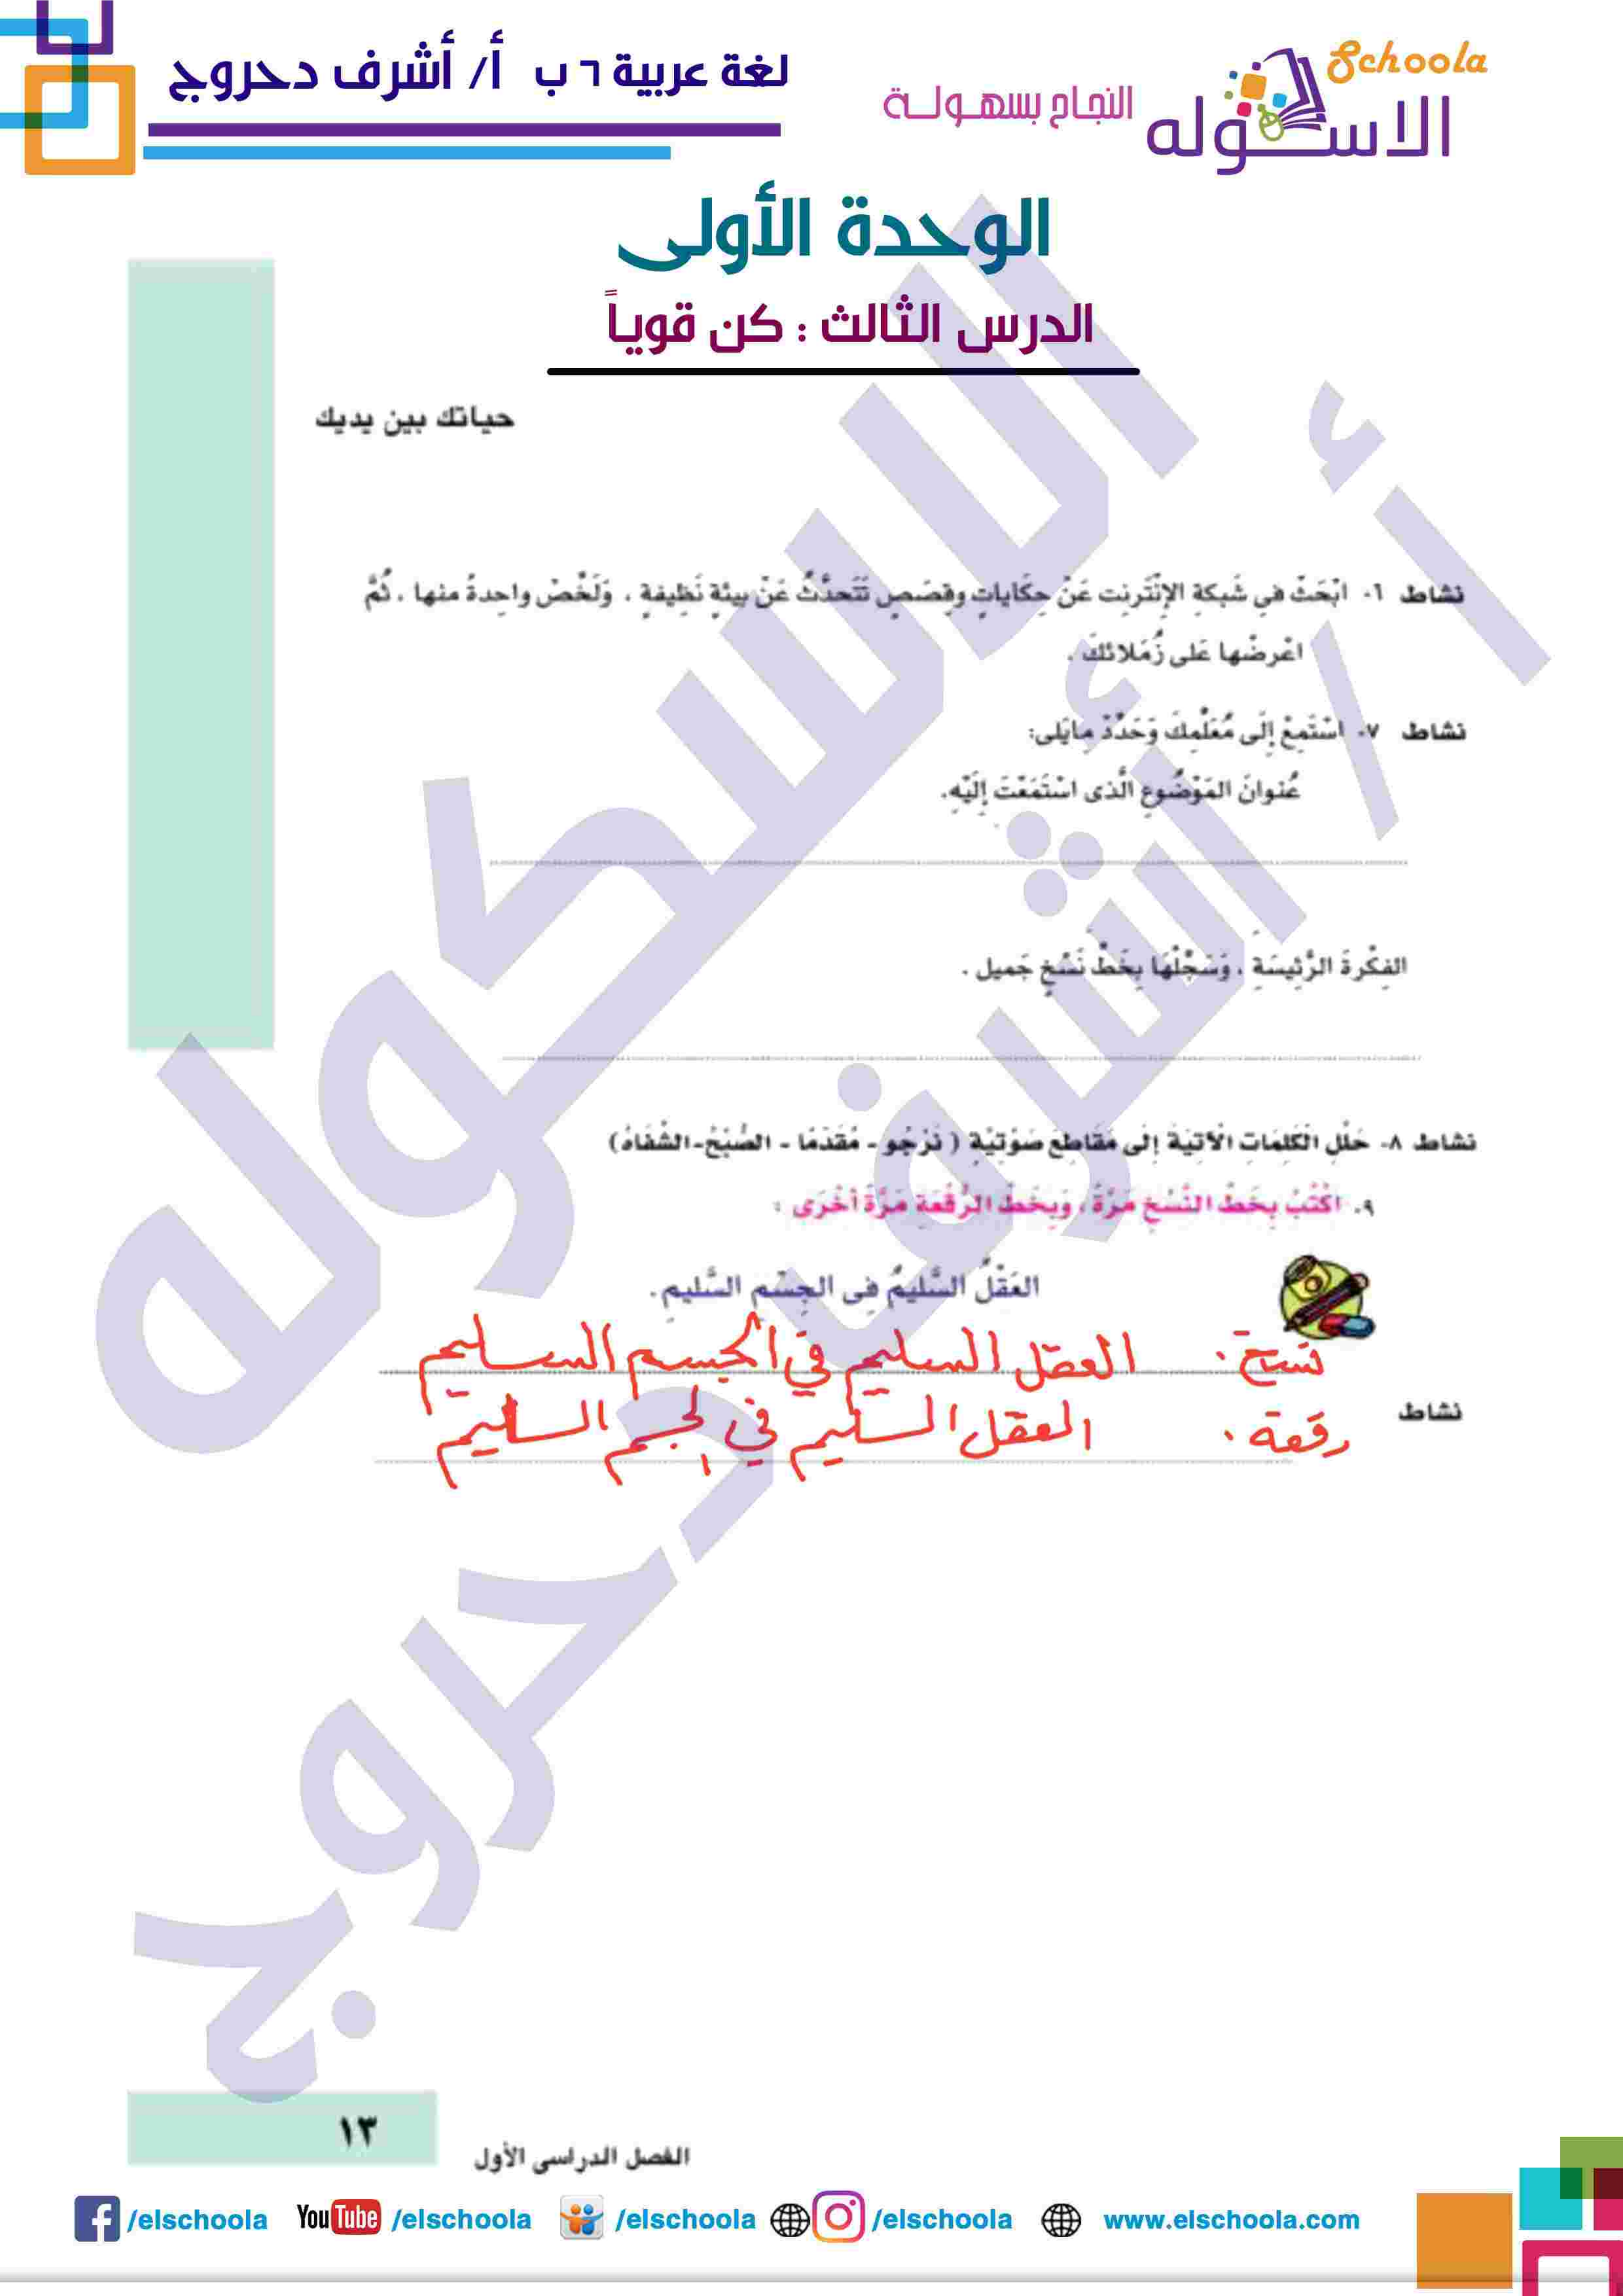 لغة عربية ٦ ب أ/ أشرف دحروج
Schoola
الاسكوله
النجاح بسهولة
الوحدة الأولى
الدرس الثالث : كن قوياً
حياتك بين يديك
نشاط ٦- ابْحَثْ فى شَبكةِ الإنْتَرنِت عَنْ حِكَاياتٍ وقِصَصٍ تَتَحدَّثُ عَنْ بيئةٍ نَظِيفةٍ ، وَلَخِّصْ واحِدةً منها ، ثُمَّ
اعْرضْها عَلى زُمَلائكَ .
نشاط ٧- اسْتَمِعْ إلَى مُعَلِّمِكَ وَحَدِّدْ مايَلى:
عُنوانَ المَوْضُوعِ الَّذى اسْتَمَعْتَ إلَيْهِ.
الفِكْرةَ الرَّئِيسَةِ ، وَسَجِّلْهَا بِخَطِّ نَسْخٍ جَميل .
نشاط ٨- حَلِّلِ الْكَلِمَاتِ الْآتيَةَ إلَى مَقَاطِعَ صَوْتيَّةٍ ( نَرْجُو - مُقَدّمًا - الصُّبْحُ-الشِّفَاهُ)
٩- اكْتُبْ بِخَطِّ النَّسْخِ مَرَّةً ، وَبِخَطِّ الرُّقْعَةِ مَرَّةً أخْرَى :
العَقْلُ السَّليمُ فِى الجِسْمِ السَّليمِ .
نسخ . العقل السليم في الجسم السليم
نشاط
رقعة . العقل السليم في الجسم السليم
الاسكوله
أ / أشرف دحروج
١٣
الفصل الدراسى الأول
/elschoola YouTube /elschoola /elschoola /elschoola www.elschoola.com